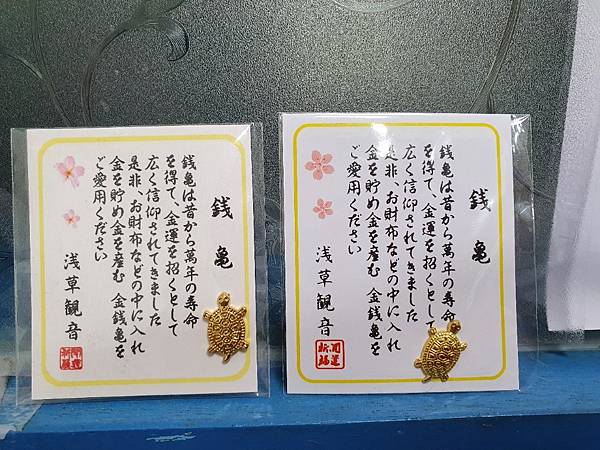 銭亀
銭亀は昔から萬年の寿命
を得て、金運を招くとして
広く信仰されてきました
是非、お財布などの中に入れ
金を貯め金を産む 金銭亀を
ご愛用ください
浅草観音
銭亀
銭亀は昔から萬年の寿命
を得て、金運を招くとして
広く信仰されてきました
是非、お財布などの中に入れ
金を貯め金を産む 金銭亀を
ご愛用ください
浅草観音
開運
招福